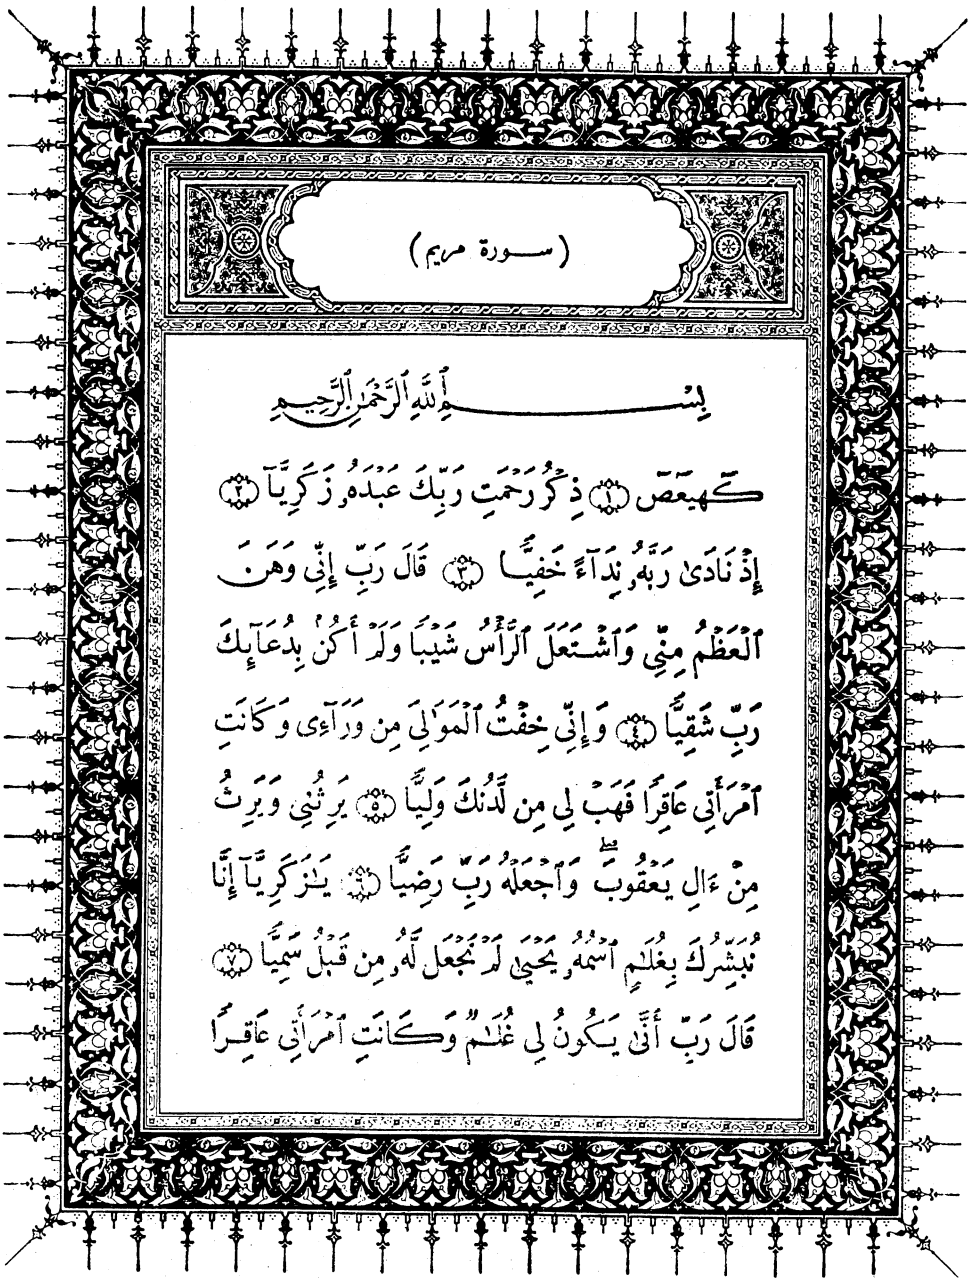 (سورة مريم)
بِسْمِ ٱللَّهِ ٱلرَّحْمَٰنِ ٱلرَّحِيمِ
كٓهيعٓصٓ ١ ذِكْرُ رَحْمَتِ رَبِّكَ عَبْدَهُۥ زَكَرِيَّآ ٢
إِذْ نَادَىٰ رَبَّهُۥ نِدَآءً خَفِيًّا ٣ قَالَ رَبِّ إِنِّى وَهَنَ
ٱلْعَظْمُ مِنِّى وَٱشْتَعَلَ ٱلرَّأْسُ شَيْبًا وَلَمْ أَكُنۢ بِدُعَآئِكَ
رَبِّ شَقِيًّا ٤ وَإِنِّى خِفْتُ ٱلْمَوَٰلِىَ مِن وَرَآءِى وَكَانَتِ
ٱمْرَأَتِى عَاقِرًا فَهَبْ لِى مِن لَّدُنكَ وَلِيًّا ٥ يَرِثُنِى وَيَرِثُ
مِنْ ءَالِ يَعْقُوبَ ۖ وَٱجْعَلْهُ رَبِّ رَضِيًّا ٦ يَٰزَكَرِيَّآ إِنَّا
نُبَشِّرُكَ بِغُلَٰمٍ ٱسْمُهُۥ يَحْيَىٰ لَمْ نَجْعَل لَّهُۥ مِن قَبْلُ سَمِيًّا ٧
قَالَ رَبِّ أَنَّىٰ يَكُونُ لِى غُلَٰمٌ وَكَانَتِ ٱمْرَأَتِى عَاقِرًا